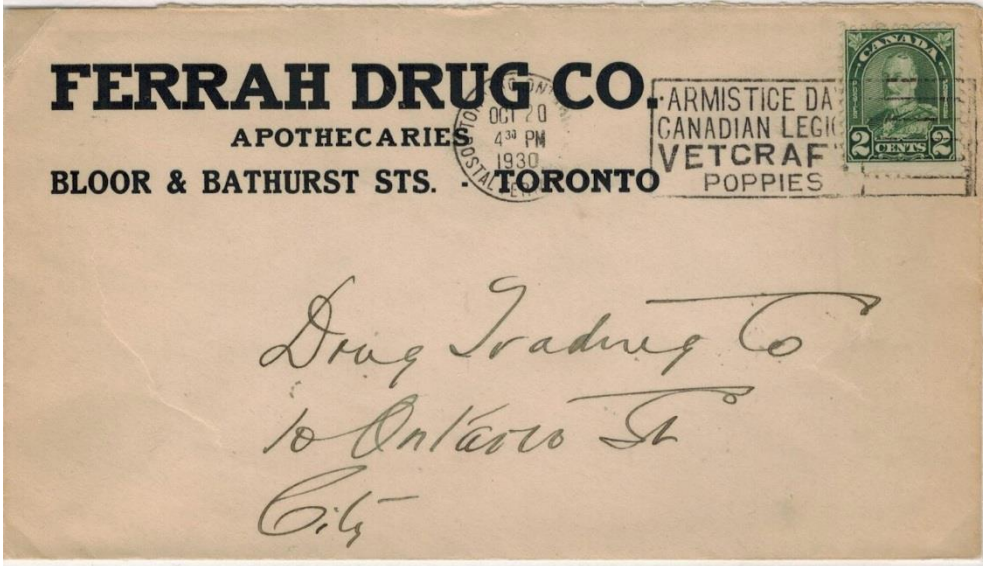 FERRAH DRUG CO.
APOTHECARIES
BLOOR & BATHURST STS. - TORONTO
OCT 20
4 30 PM
1930
POSTAL
ARMISTICE DA
CANADIAN LEGIO
VETCRAFT
POPPIES
CANADA
2 CENTS 2
Drug Trading Co
10 Ontario St
City